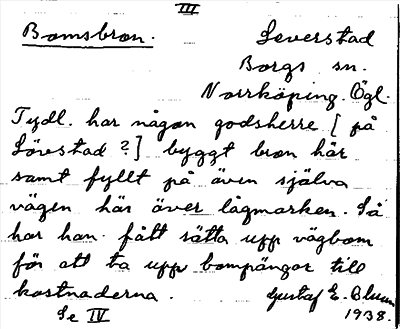 III
Bomsbron. Leverstad
Borgs sn.
Norrköping. Ögl.
Tydl. har någon godsherre [ på
Lövestad ? ] byggt bron här
samt fyllt på även själva
vägen här över lågmarken. Så
har han fått sätta upp vägbom
för att ta upp bompängar till
kostnaderna. Gustaf E. Blum
Se IV 1938.